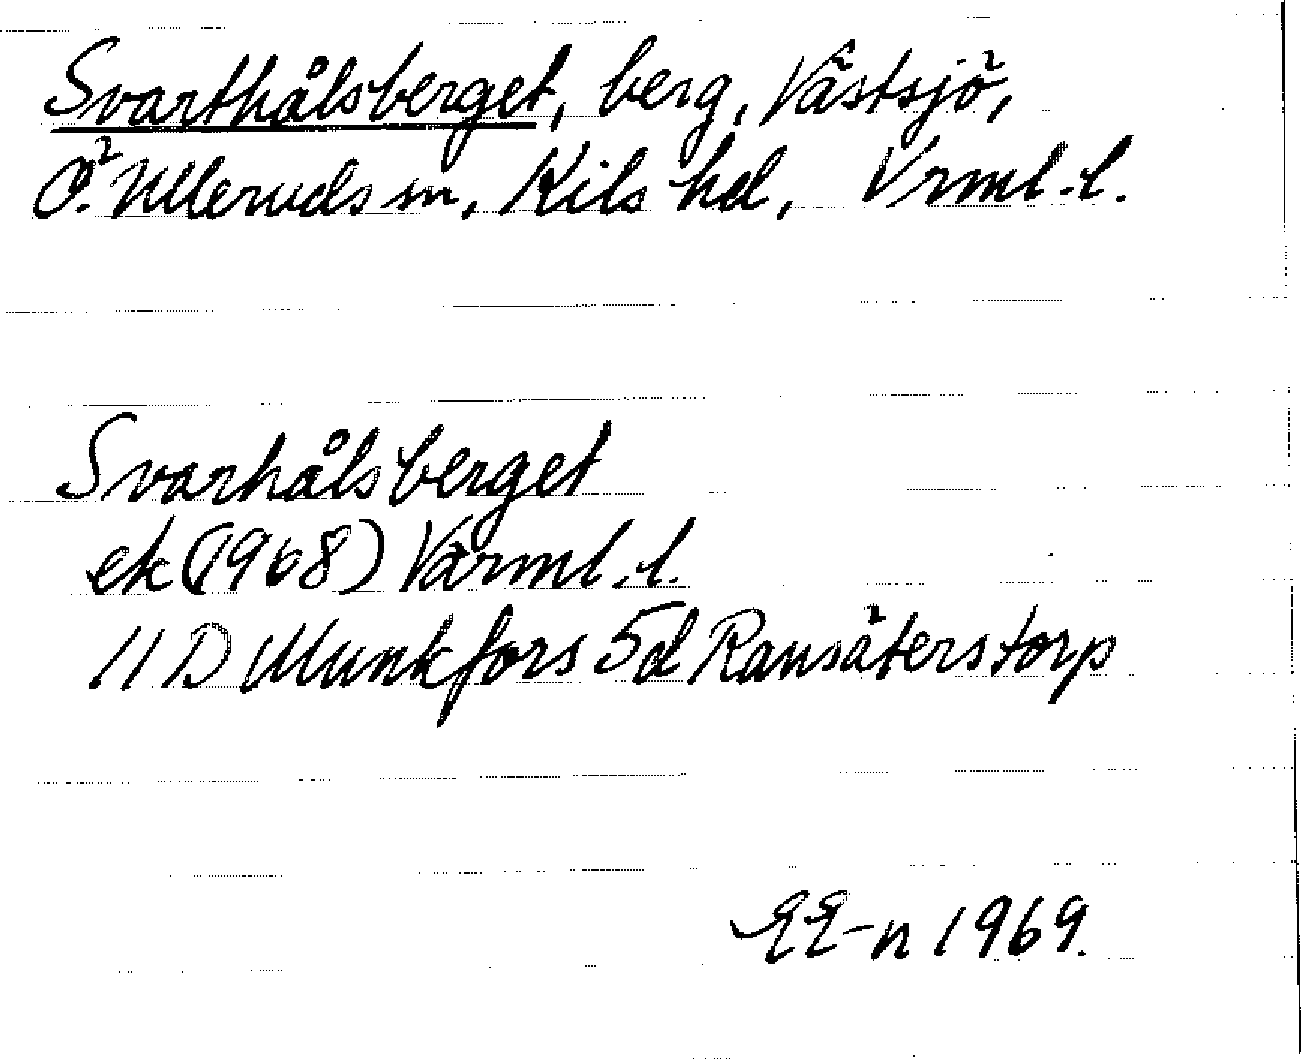 Svarthålsberget, berg, Västsjö,
Ö. Ulleruds sn, Kils hd, Vrml. l.
Svarhålsberget
ek (1968) Värml. l.
11 D Munkfors 5d Ransäterstorp
EE-n 1969.